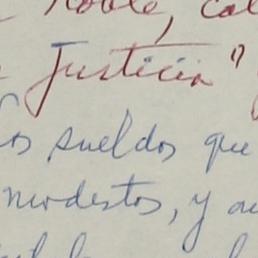 noble, cal
Justicia"
los sueldos que
modestos, y au